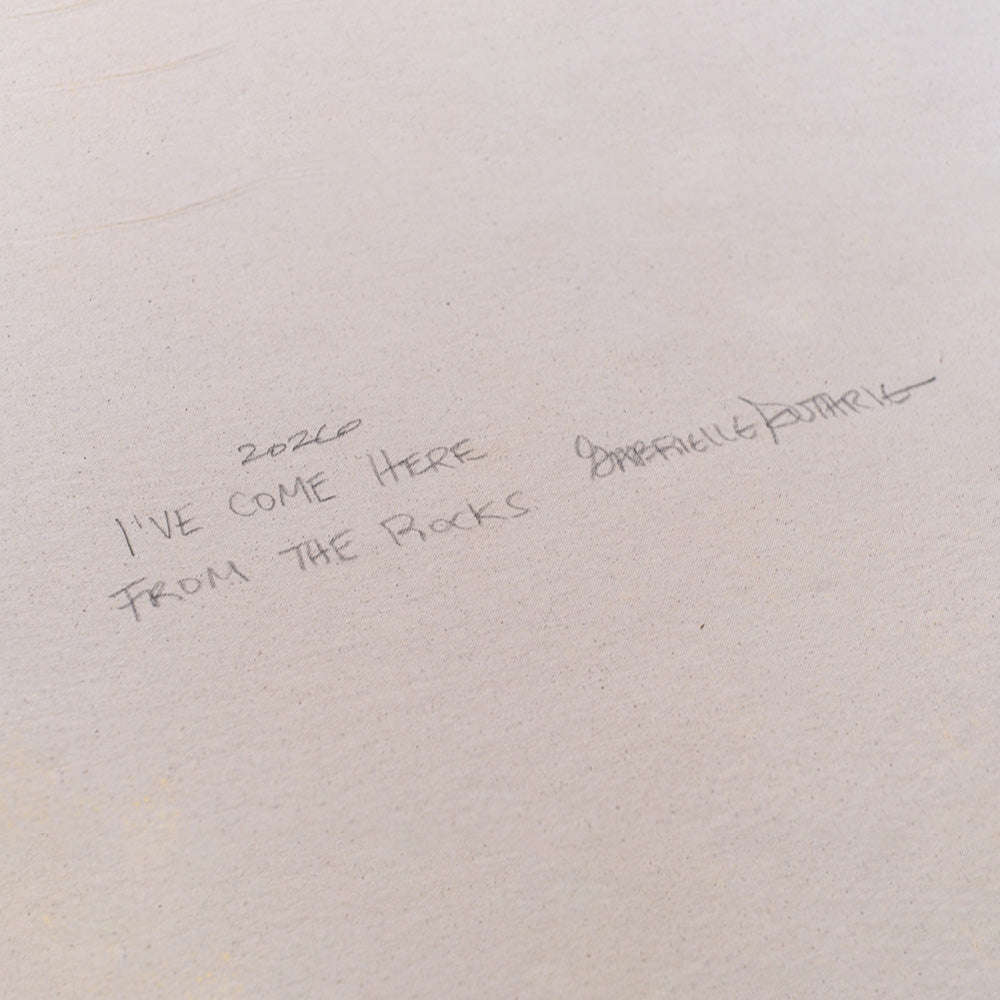 2026
I'VE COME HERE
FROM THE ROCKS
GABRIELLE GUTHRIE